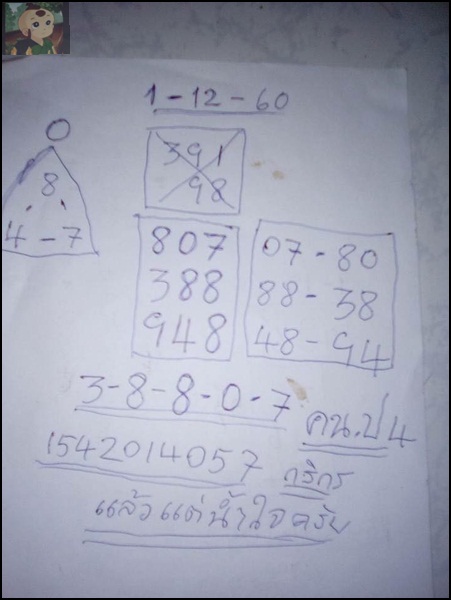 1-12-60
391
98
0
8
4-7
807
388
948
07-80
88-38
48-94
3-8-8-0-7
คน.ป4
1542014057
กสิกร
แล้วแต่น้ำใจครับ